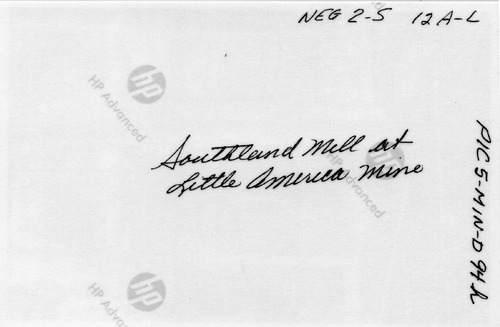 NEG 2-5 12A-L
HP Advanced
Southland Mill at
Little America Mine
HP Advanced
PIC 5-MIN-D 94h
HP Advanced